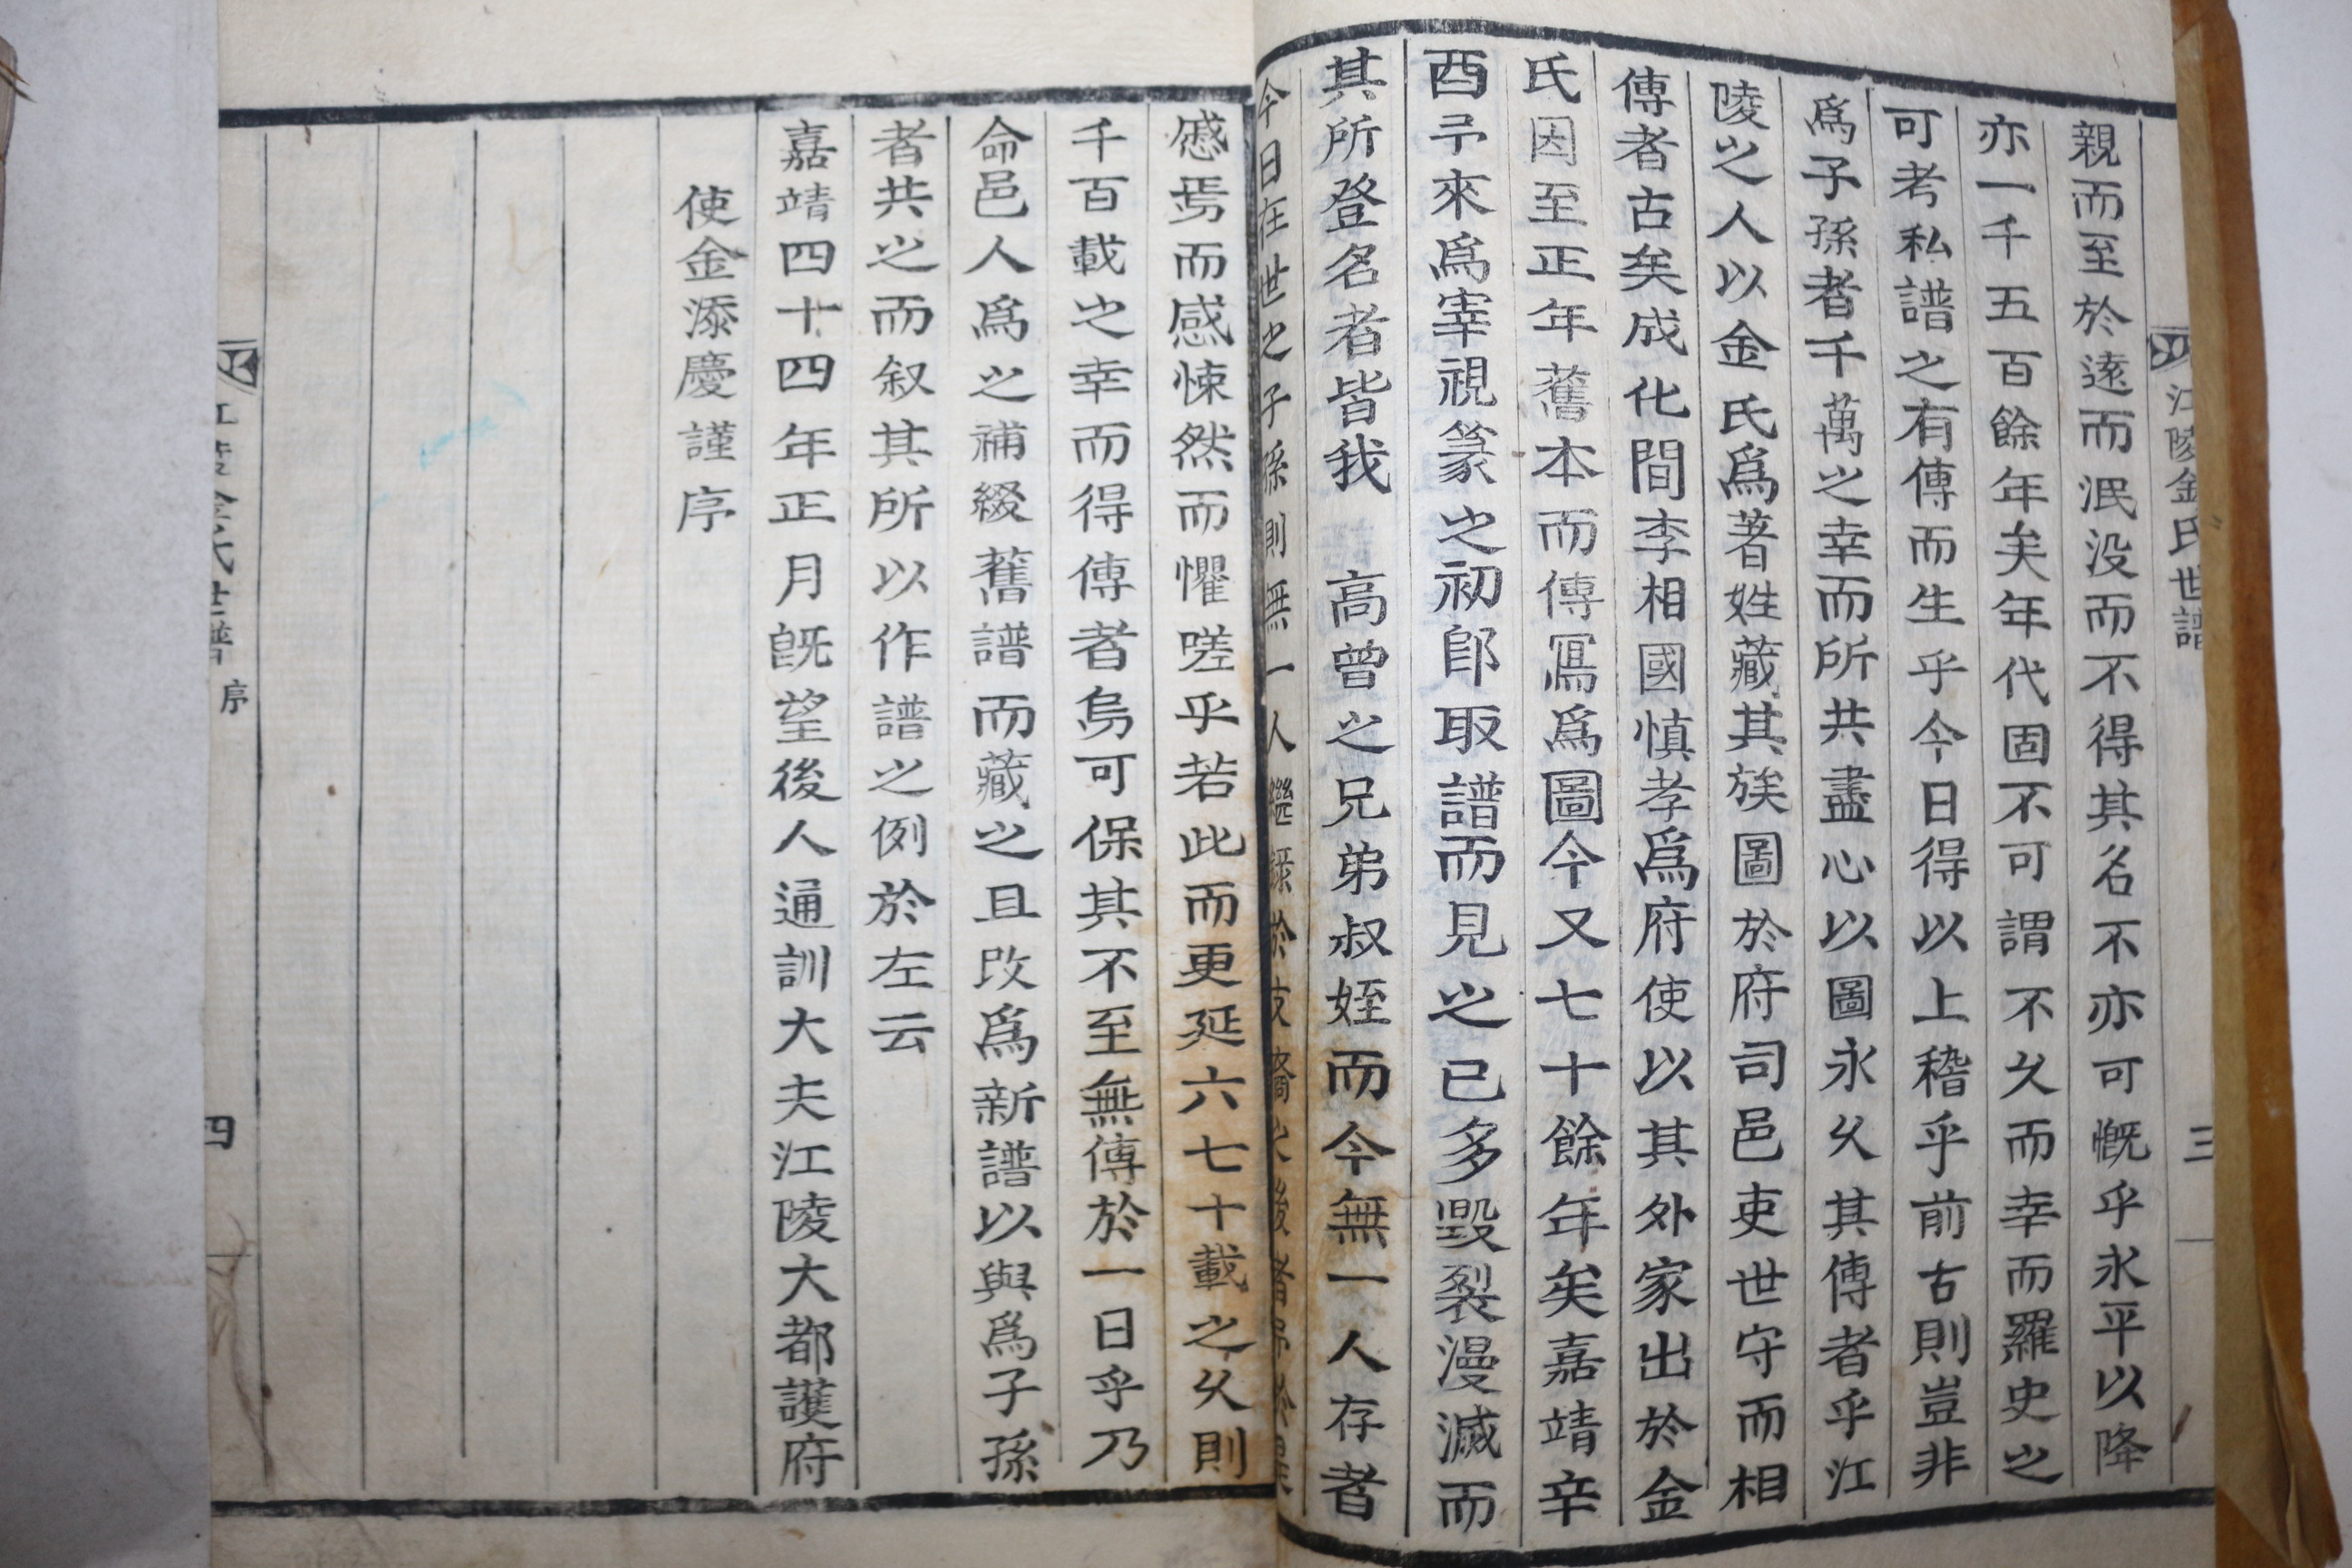 江陵金氏世譜
三
親而至於遠而泯没而不得其名不亦可慨乎永平以降
亦一千五百餘年矣年代固不可謂不久而幸而羅史之
可考私譜之有傳而生乎今日得以上稽乎前古則豈非
爲子孫者千萬之幸而所共盡心以圖永久其傳者乎江
陵之人以金氏爲著姓藏其族圖於府司邑吏世守而相
傳者古矣成化間李相國慎孝爲府使以其外家出於金
氏因至正年舊本而傳寫爲圖今又七十餘年矣嘉靖辛
酉予來爲宰視篆之初卽取譜而見之已多毀裂漫滅而
其所登名者皆我 高曾之兄弟叔姪而今無一人存者
今日在世之子孫則無一人繼録於支裔之後者
慼焉而感悚然而懼嗟乎若此而更延六七十載之久則
千百載之幸而得傳者烏可保其不至無傳於一日乎乃
命邑人爲之補綴舊譜而藏之且改爲新譜以與爲子孫
者共之而叙其所以作譜之例於左云
嘉靖四十四年正月旣望後人通訓大夫江陵大都護府
使金添慶謹序
江陵金氏世譜 序
四